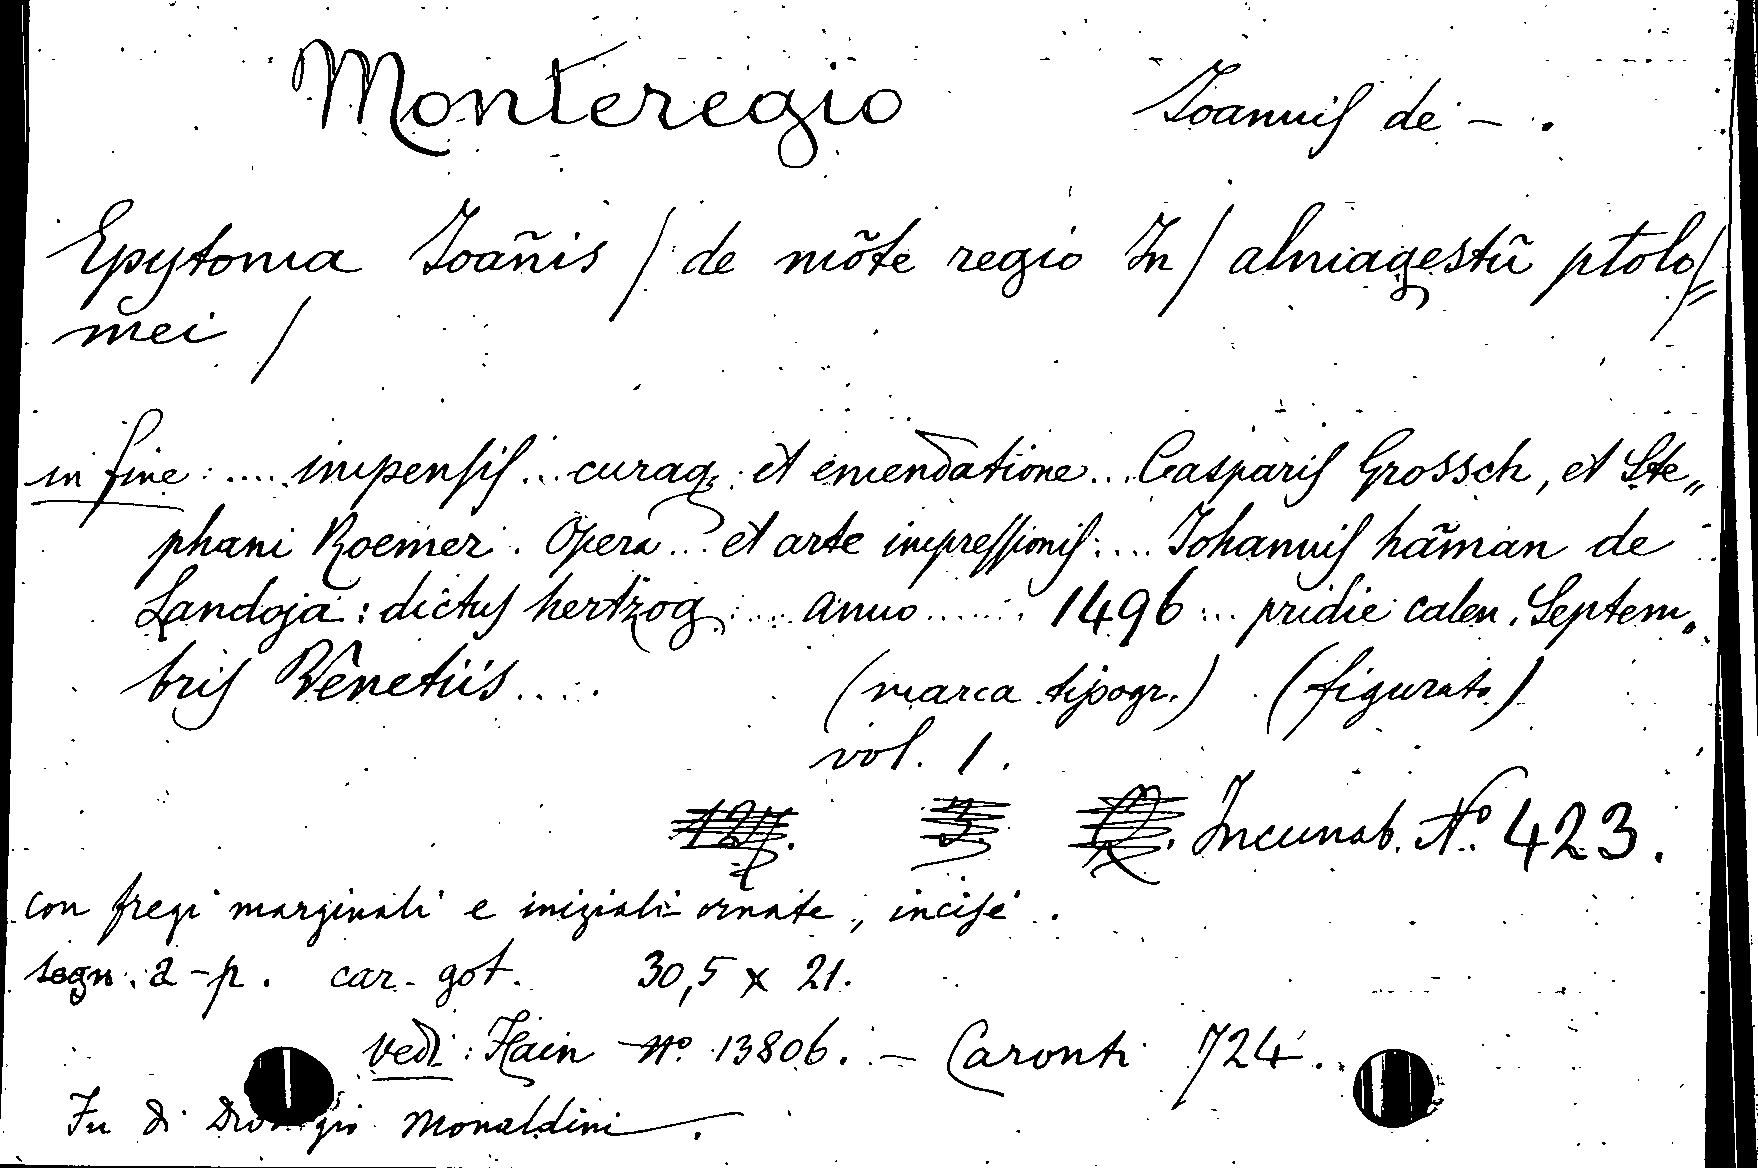 Monteregio Ioannis de - .
Epytoma Ioañis / de mõte regio In / almagestũ ptolo/=
mei /
in fine: .... impensis ... curaq; et emendatione ... Casparis Grossch, et Ste„
phani Roemer. Opera ... et arte impressionis .... Johannis hãman de
Landoja: dictus hertzog .... anno ...... 1496 ... pridie calen. Septem„
bris Venetiis .... (marca tipogr.) (figurato)
vol. 1.
Incunab. Nº 423.
con fregi marginali e iniziali ornate, incise.
segn. a-p. car. got. 30,5 x 21.
vedi: Hain Nº 13806. - Caronti 724.
Fu di Monaldini.